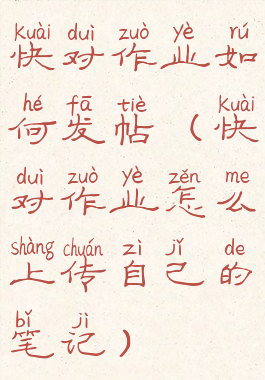 kuài duì zuò yè rú
快对作业如
hé fā tiè kuài
何发帖（快
duì zuò yè zěn me
对作业怎么
shàng chuán zì jǐ de
上传自己的
bǐ jì
笔记）